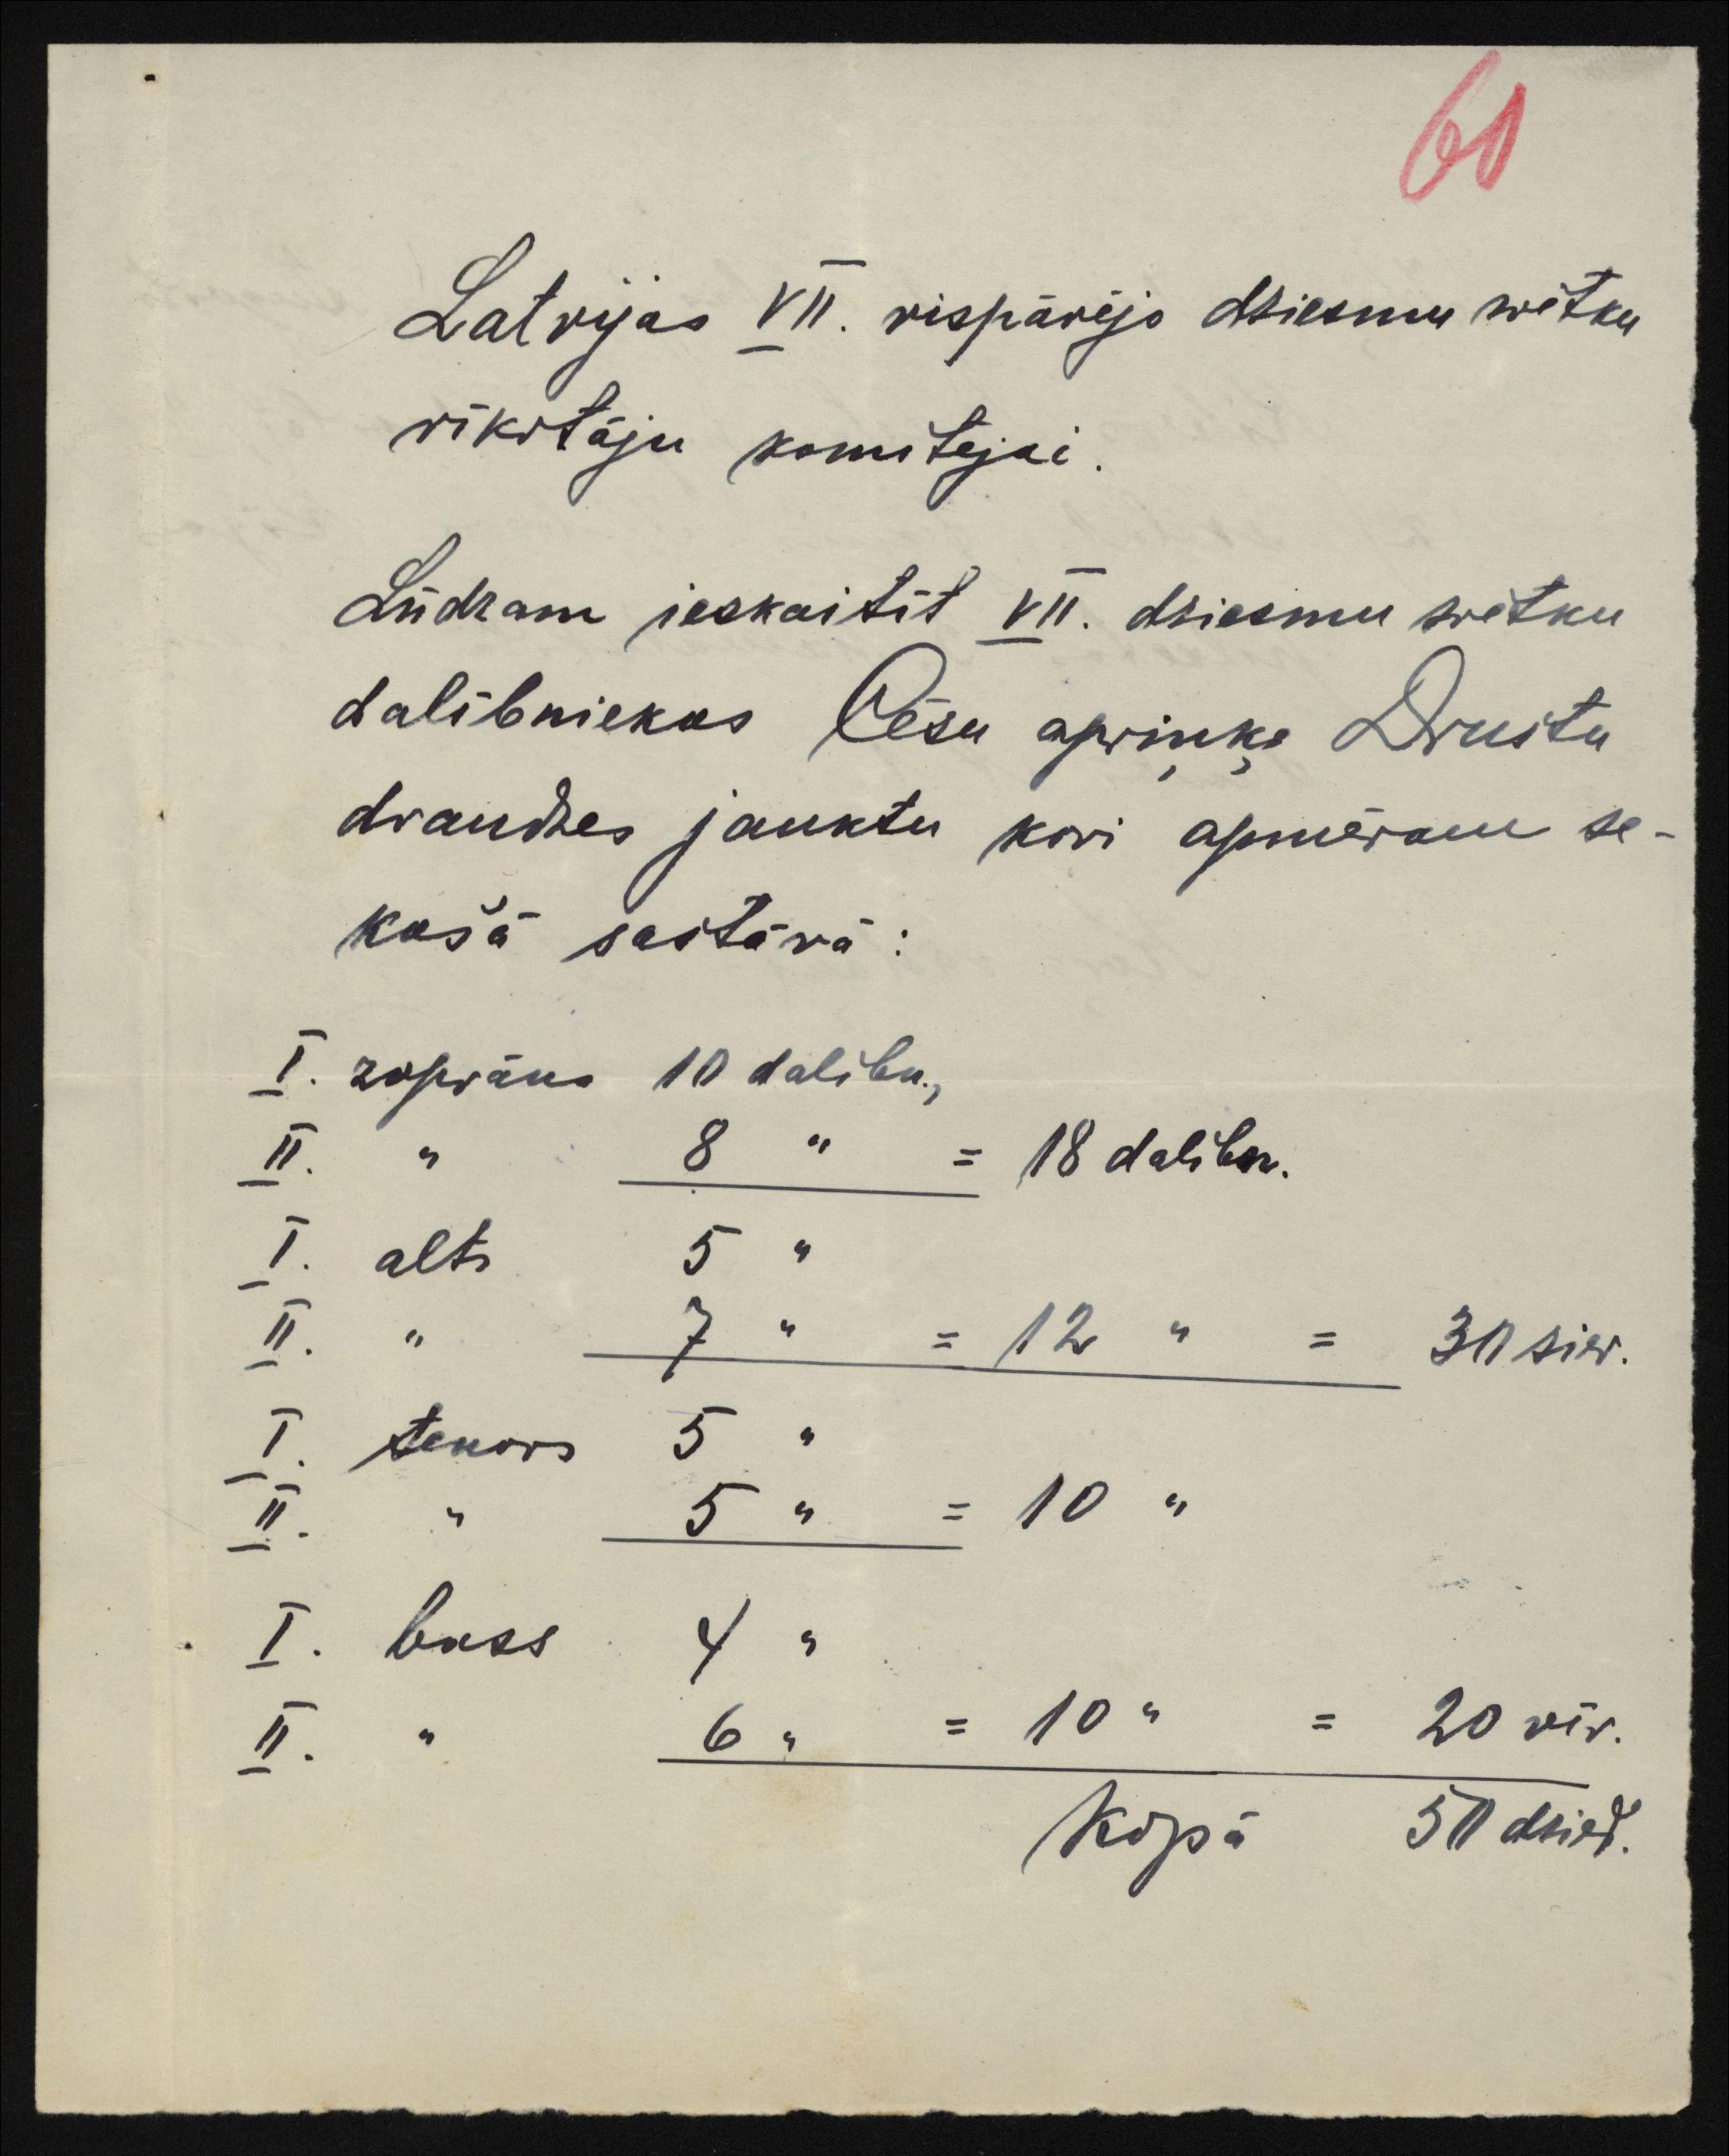 60
Latvijas VII. vispārējo dziesmu svētku
rīkotāju komitejai.
Lūdzam ieskaitīt VII. dziesmu svētku
dalībniekos Cēsu apriņķa Drustu
draudzes jauktu kori apmēram se-
košā sastāvā:
I. zoprāns 10 dalībn.,
II. " 8 " = 18 dalībn.
I. alts 5 "
II. " 7 " = 12 " = 30 siev.
I. tenors 5 "
II. " 5 " = 10 "
I. bass 4 "
II. " 6 " = 10 " = 20 vīr.
Kopā 50 dzied.